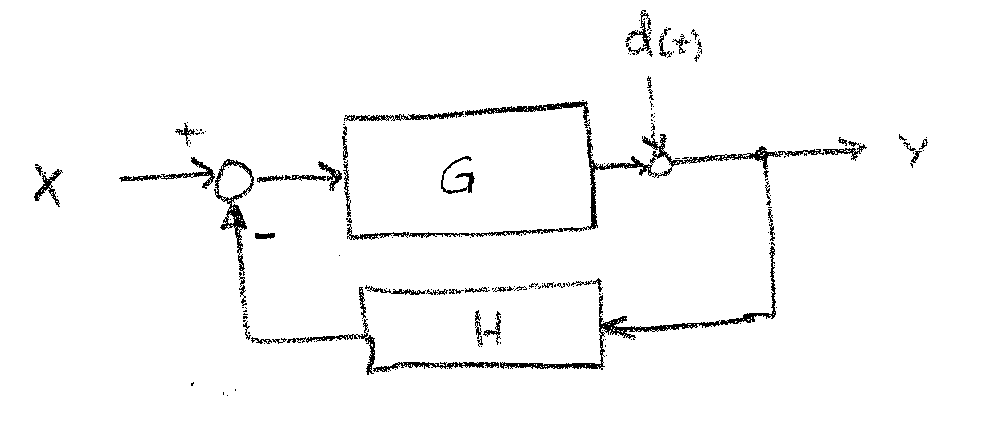 d(t)
+
X
G
Y
-
H